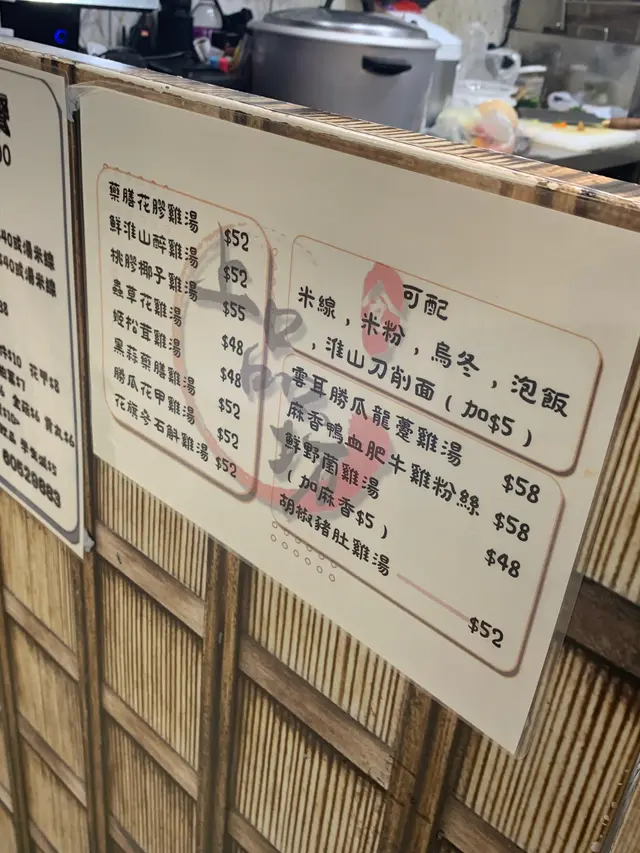 00
$40或湯米線
$40或湯米線
38
60529883
上品坊
藥膳花膠雞湯 $52
鮮淮山醉雞湯 $52
桃膠椰子雞湯 $55
蟲草花雞湯 $48
姬松茸雞湯 $48
黑蒜藥膳雞湯 $52
勝瓜花甲雞湯 $52
花旗參石斛雞湯 $52
可配
米線，米粉，烏冬，泡飯
，淮山刀削面（加$5）
雲耳勝瓜龍躉雞湯 $58
麻香鴨血肥牛雞粉絲 $58
鮮野菌雞湯 $48
（加麻香$5）
胡椒豬肚雞湯 $52